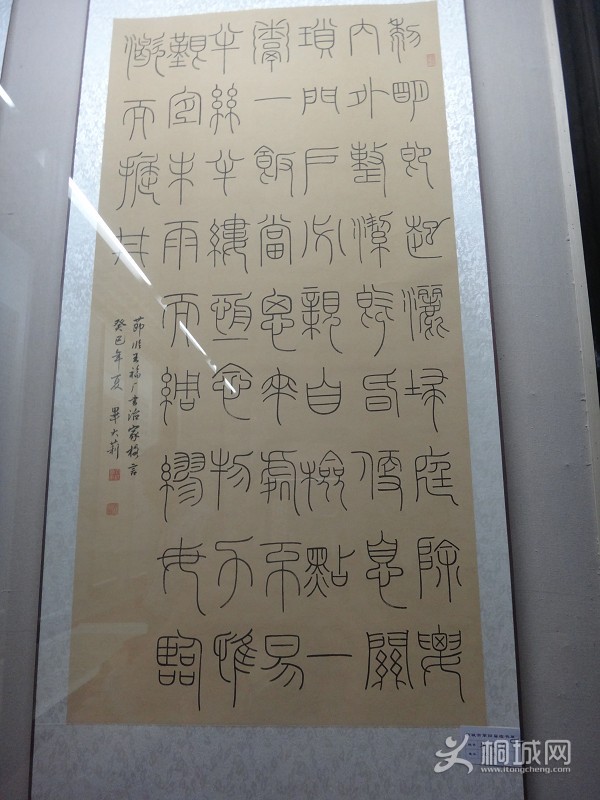 黎明即起灑埽庭除要
内外整潔既昏便息關
瑣門戶必親自檢點一
粥一飯當思來處不易
半絲半縷恆念物力惟
艱宜未雨而綢繆毋臨
渴而掘井
節临王福厂書治家格言
癸巳年夏 畢大莉
桐城网
www.itongcheng.com